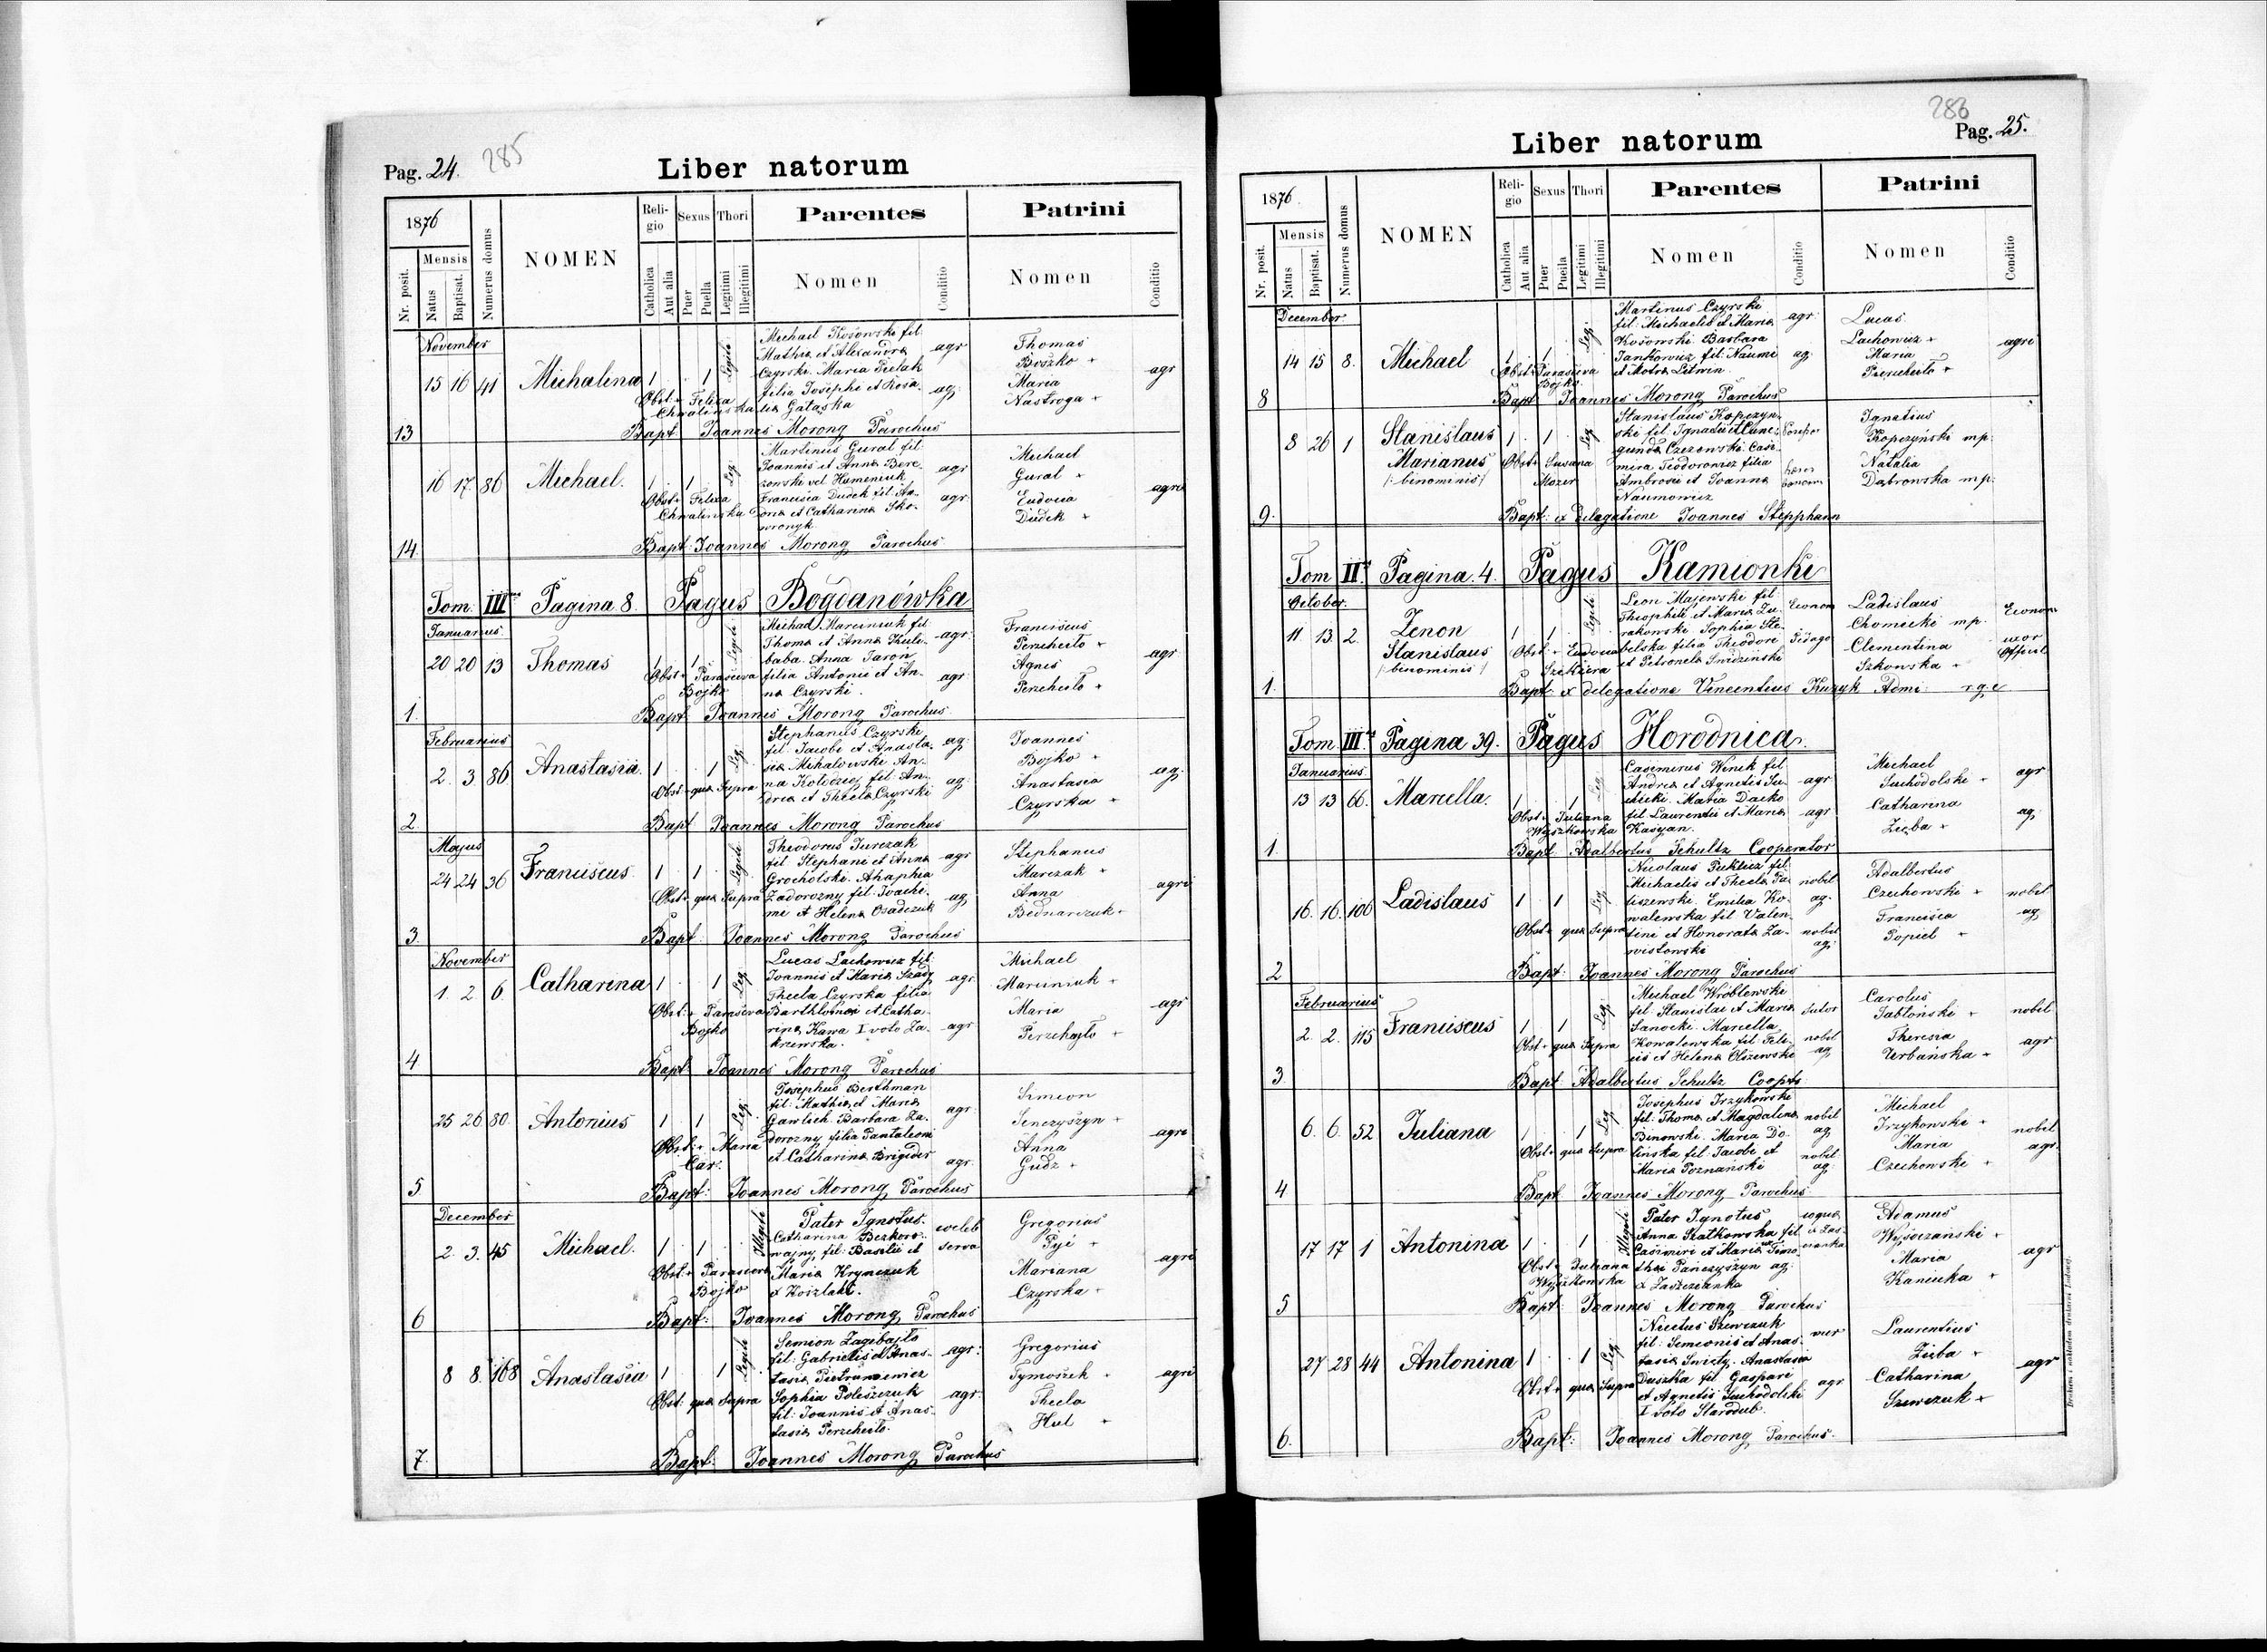 Pag. 24. 285
Liber natorum
1876
Nr. posit.
Mensis
Natus
Baptisat.
Numerus domus
NOMEN
Reli-
gio
Catholica
Aut alia
Sexus
Puer
Puella
Thori
Legitimi
Illegitimi
Parentes
Nomen
Conditio
Patrini
Nomen
Conditio
November
13
15 16 41
Michalina
1 1 Legiti
Obst + Felixa
Chwalinska
Michael Kosowski fil
Mathiæ et Alexandræ
Czyrski. Maria Pielak
filia Josephi et Rosa-
liæ Gataska
agr
ag:
Thomas
Boszko +
Maria
Nastroga +
agr
Bapt Joannes Morong Parochus
14.
16 17 86
Michael.
1 1 Leg:
Obst + Felixa
Chwalinska
Martinus Gural fil
Joannis et Anna Bere-
zowski vel Humeniuk
Francisca Dudek fil: An-
toniæ et Catharinæ Sko-
wronyk
agr
agr:
Michael
Gural +
Eudocia
Dudek +
agri
Bapt: Joannes Morong Parochus
Tom. III Pagina 8. Pagus Bogdanówka
Januarius
1.
20 20 13
Thomas
1 1 Legiti
Obst + Parasceva
Bojko
Michael Marciniuk fil
Thomæ et Anna Kule-
baba. Anna Jaron
filia Antonii et An-
næ Czyrski.
agr:
agr:
Franciscus
Perzcheiło +
Agnes
Perzcheiło +
agr
Bapt Joannes Morong Parochus
Februarius
2.
2. 3 86
Anastasia.
1 1 Leg:
Obst + quæ Supra
Stephanus Czyrski
fil: Jacobi et Anasta-
siæ Michalowski. An-
na Kołodziej fil: An-
dreæ et Theclæ Czyrski
ag:
ag:
Joannes
Bojko +
Anastasia
Czyrska +
ag:
Bapt Joannes Morong Parochus
Majus
3.
24 24 36
Franciscus.
1 1 Legiti
Obst + quæ Supra
Theodorus Jurczak
fil: Stephani et Anna
Grocholski. Ahaphia
Zadorozny fil: Joachi-
mi et Helenæ Osadczuk
agr
ag
Stephanus
Marczak +
Anna
Bednarczuk +
agri
Bapt: Joannes Morong Parochus
November
4
1. 2 6.
Catharina
1 1 Leg:
Obst: + Parasceva
Bojko
Lucas Lachowicz fil:
Joannis et Mariæ Szady
Thecla Czyrska filia
Bartholomæi et Catha-
rinæ Kawa I voto Za-
krzewska.
agr
agr
Michael
Marciniuk +
Maria
Perzchajło +
agr
Bapt: Joannes Morong Parochus
5
25 26 80.
Antonius
1 1 Leg:
Obst: + Maria
Car.
Josephus Berthman
fil: Mathiæ et Mariæ
Gawlich. Barbara Za-
dorozny filia Pantaleoni
et Catharinæ Brigider
agr:
agr:
Simeon
Senczyszyn +
Anna
Gudz +
agri
Bapt: Joannes Morong Parochus
December
6
2. 3. 45
Michael.
1 1 Illegiti
Obst: + Parasceva
Bojko
Pater Ignotus.
Catharina Bezkoro-
wajny fil: Basilii et
Mariæ Krynczuk
x Koizlaki.
coeleb
serva
Gregorius
Pyé +
Mariana
Czyrska +
agri
Bapt: Joannes Morong Parochus
7.
8 8. 108
Anastasia
1 1 Legiti
Obst: quæ Supra
Semion Zagibajło
fil: Gabrielis et Anas-
tasiæ Pietruniewicz
Sophia Poleszczuk
fil: Joannis et Anas-
tasiæ Perzcheiło.
agr:
agr:
Gregorius
Tymoszek +
Thecla
Hul +
agri
Bapt: Joannes Morong Parochus
286
Pag. 25.
Liber natorum
1876.
Nr. posit.
Mensis
Natus
Baptisat.
Numerus domus
NOMEN
Reli-
gio
Catholica
Aut alia
Sexus
Puer
Puella
Thori
Legitimi
Illegitimi
Parentes
Nomen
Conditio
Patrini
Nomen
Conditio
December
8
14 15 8.
Michael
1 1 Leg:
Obst + Parasceva
Bojko.
Martinus Czyrski
fil: Michaelis et Mariæ
Kosowski. Barbara
Jankowicz fil: Naumi
et Motræ Litwin.
agr:
ag:
Lucas
Lachowicz +
Maria
Perzcheiło +
agri
Bapt Joannes Morong Parochus
9.
8 26 1
Stanislaus
Marianus
/: binominis /
1 1 Leg
Obst + Susana
Mazur
Stanislaus Kopczyn-
ski fil: Ignatii et Cune-
gunda Czezowski. Casi-
mira Teodorowicz filia
Ambrosii et Joanna
Naumowicz
Ignatius
Kopczyński mp:
Natalia
Dąbrowska mp:
Bapt: ex delegatione Joannes Stepphann
Tom II Pagina. 4. Pagus Kamionki
October.
1.
11 13 2.
Zenon
Stanislaus
/: binominis /
1 1 Legiti
Obst + Eudocia
Szeklera
Leon Majewski fil
Theophili et Mariæ Zu-
rakowski. Sophia Ste-
belska filia Theodori
et Petronela Swidzinski
Econom
Ladislaus
Chomecki mp.
Clementina
Szkowska +
Econom
uxor
Official
Bapt: ex delegatione Vincentius Kuzyk Admi r.g.c
Tom III Pagina 39. Pagus Horodnica.
Januarius
1.
13 13 66.
Marcella.
1 1 Leg
Obst + Juliana
Wyszkowska
Casimirus Winik fil
Andreæ et Agnetis Su-
chicki. Maria Dacko
fil: Laurentii et Mariæ
Kasyan.
agr
agr
Michael
Suchodolski +
Catharina
Zięba +
agr
ag
Bapt: Adalbertus Schultz Cooperator
2
16. 16. 106
Ladislaus
1 1 Leg
Obst + quæ Supra
Nicolaus Puklicz fil:
Michaelis et Theclæ Pa-
liszewski. Emilia Ko-
walewska fil: Valen-
tini et Honorata Za-
wistowski
nobil
ag.
nobil
ag:
Adalbertus
Czechowski +
Francisca
Popiel +
nobil
ag
Bapt: Joannes Morong Parochus
Februarius
3.
2. 2. 115
Franciscus
1 1 Leg
Obst + quæ Supra
Michael Wróblewski
fil: Stanislai et Mariæ
Sanocki. Marcella
Kowalewska fil: Feli-
cis et Helenæ Olszewski
Sutor
nobil
ag
Carolus
Jabłoński +
Theresia
Urbańska +
nobil
agr
Bapt Adalbertus Schultz Coopts
4
6. 6. 52
Juliana
1 1 Leg
Obst + quæ Supra
Josephus Trzykowski
fil: Thomæ et Magdalenæ
Binowski. Maria Do-
linska fil: Jacobi et
Mariæ Poznański
nobil
ag
nobil
ag.
Michael
Trzykowski +
Maria
Czechowski +
nobil
agr
Bapt Joannes Morong Parochus
5
17 17 1
Antonina
1 1 Illegiti
Obst + Juliana
Wyszkowska
Pater Ignotus
Anna Szatkowska fil
Casimiri et Mariæ Timo-
thæi Panczyszyn ag:
x Zaszczianka
Adamus
Wysoczanski +
Maria
Kaniuka +
agr
Bapt: Joannes Morong Parochus
6.
27 28 44
Antonina
1 1 Leg
Obst + quæ Supra
Nicetus Szewczuk
fil: Semionis et Anas-
tasiæ Swirty. Anastasia
Duszka fil: Gaspari
et Agnetis Suchodolski
I voto Starodub.
agr
Laurentius
Zięba +
Catharina
Szewczuk +
agr
Bapt: Joannes Morong Parochus.